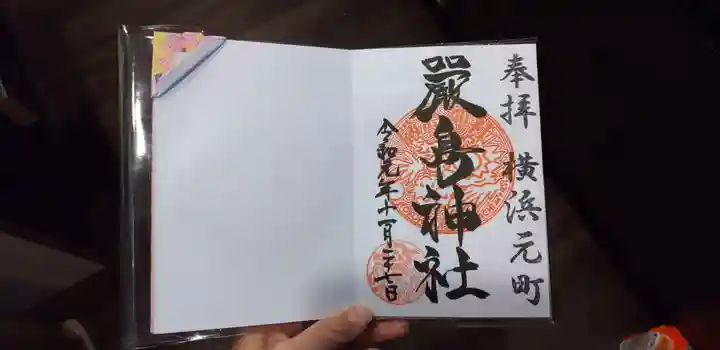 奉拝 横浜元町
嚴島神社
令和元年十一月二十七日